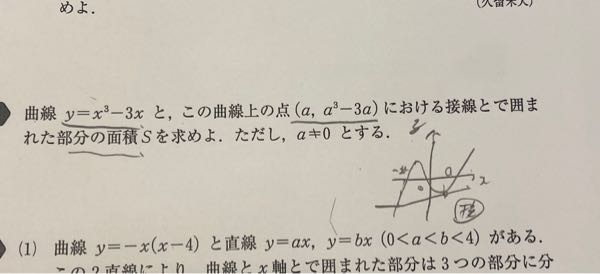 めよ.
(久留米大)
曲線 y=x³-3x と，この曲線上の点 (a, a³-3a) における接線とで囲ま
れた部分の面積 S を求めよ．ただし，a≠0 とする．
y
x
(1) 曲線 y=-x(x-4) と直線 y=ax, y=bx (0<a<b<4) がある．
この2直線により，曲線と x 軸とで囲まれた部分は3つの部分に分